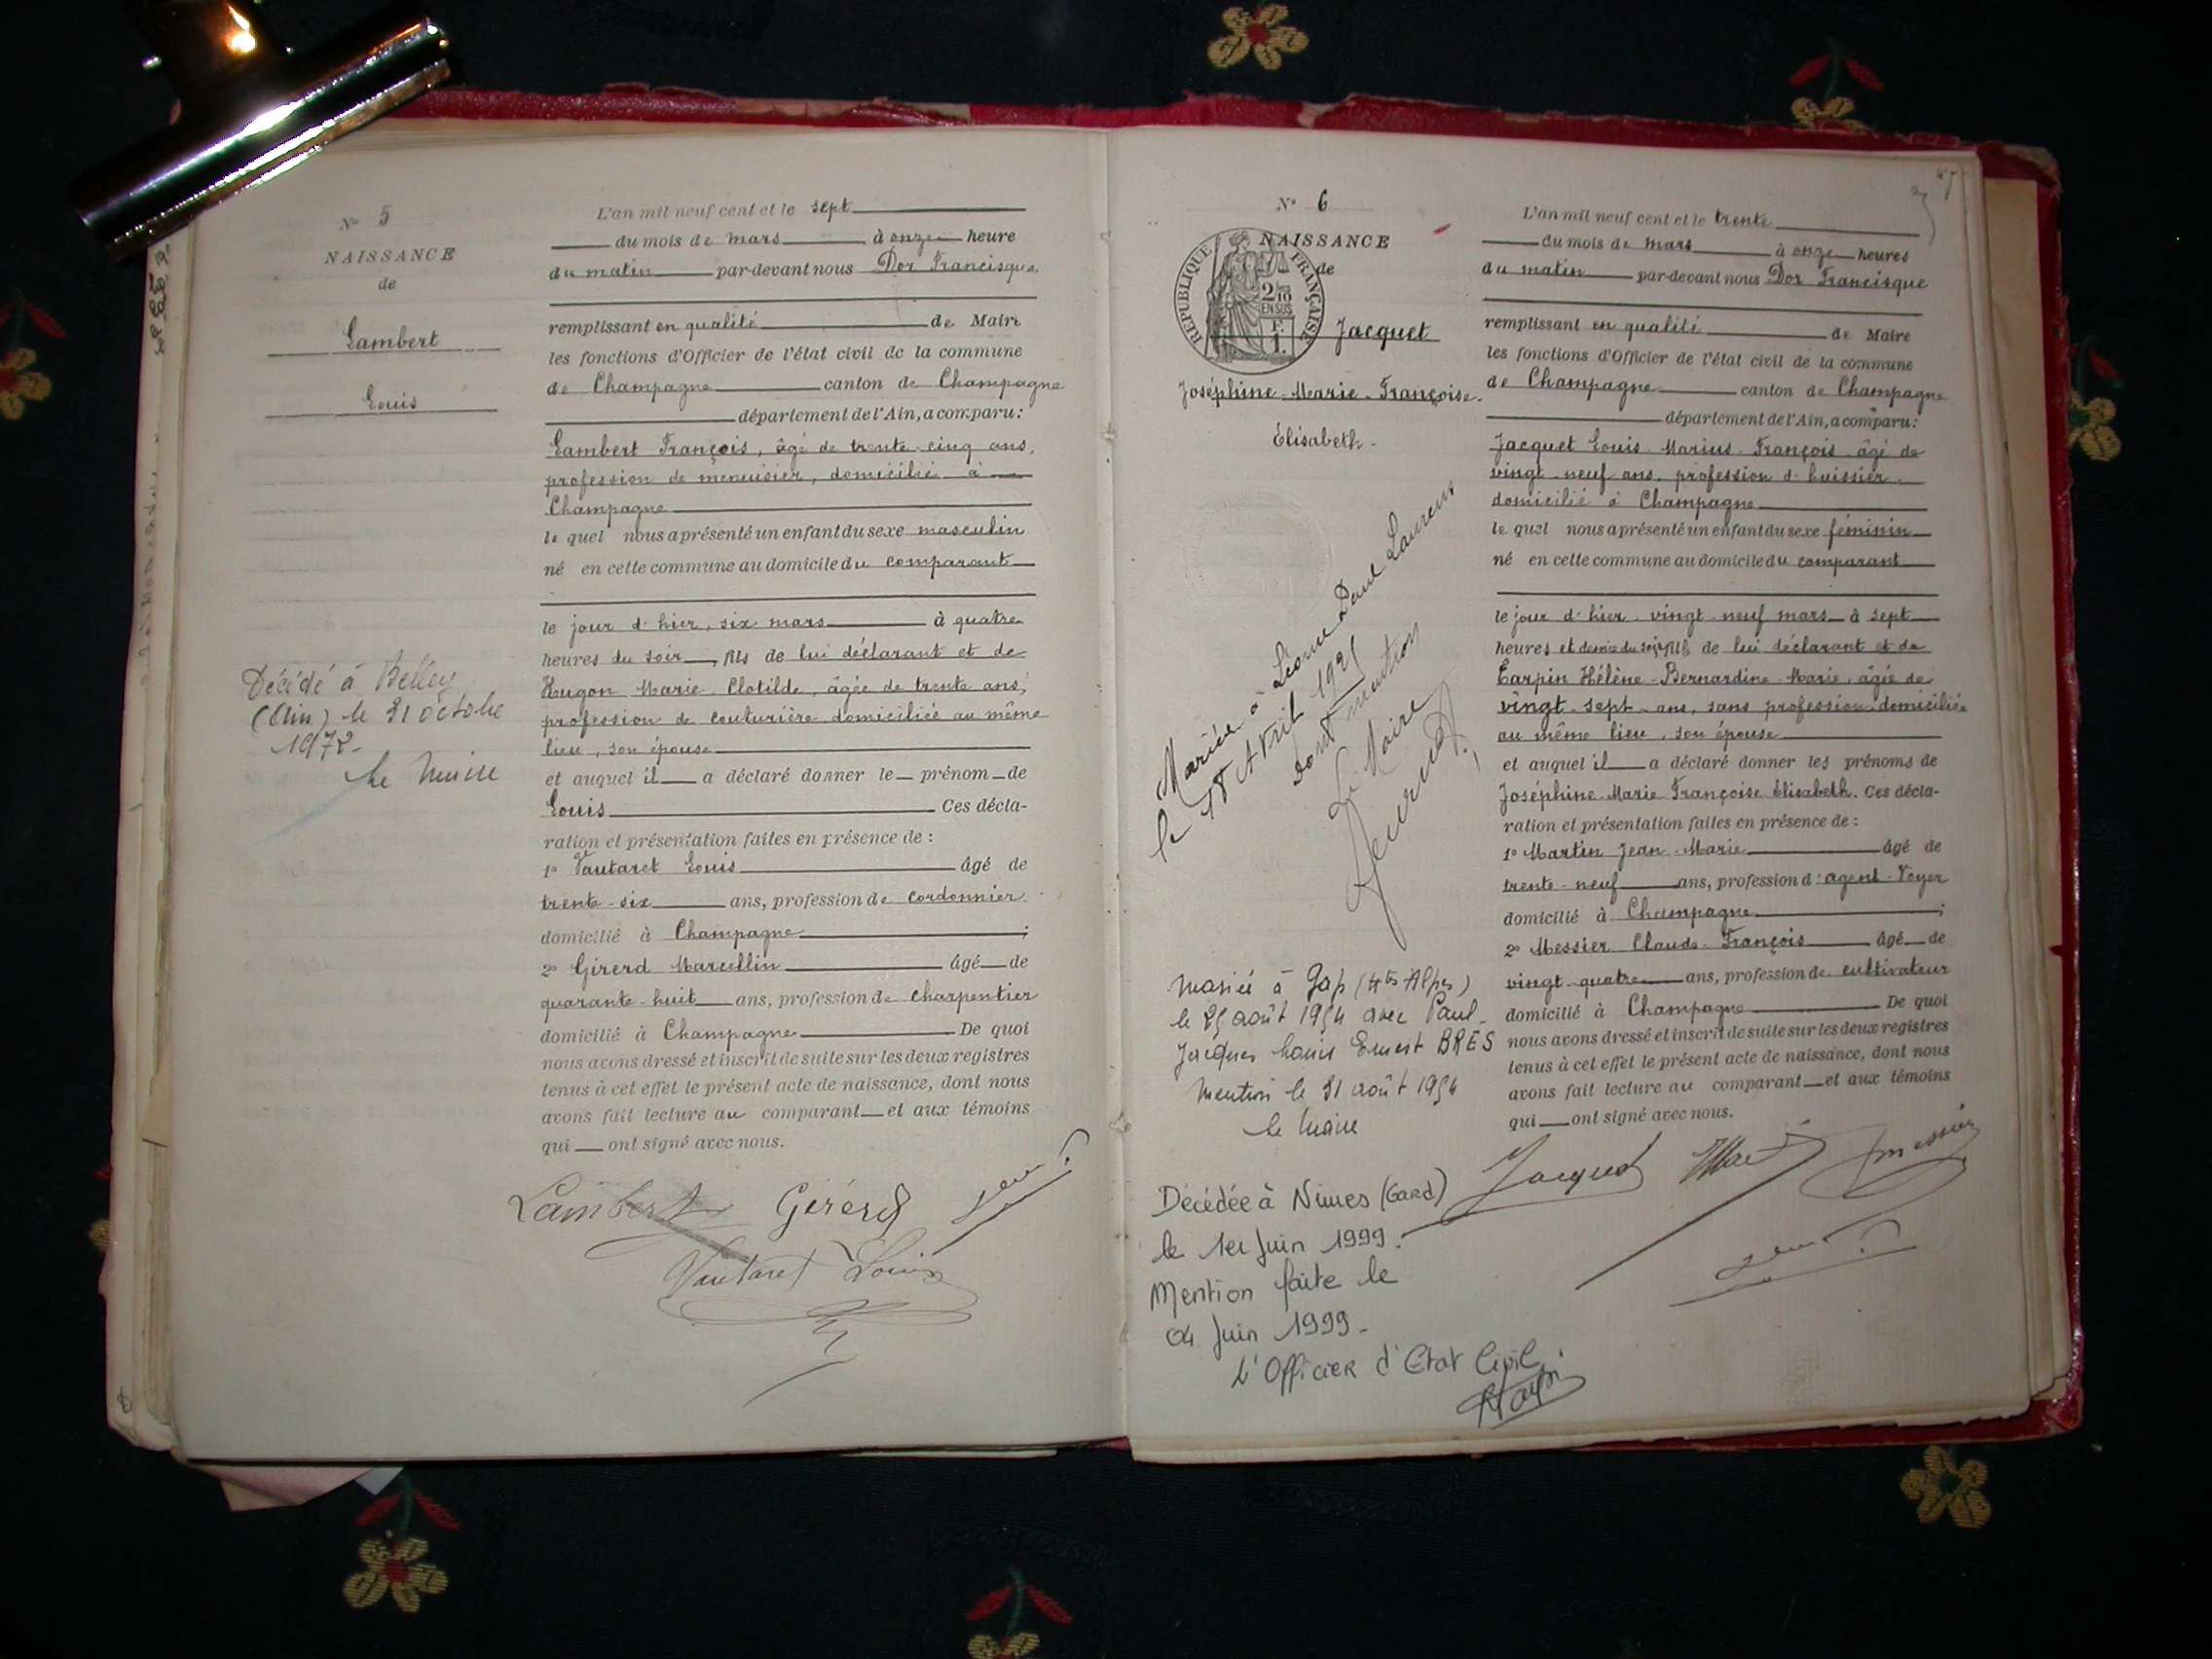 N° 5
NAISSANCE
de
Lambert
Louis
Décédé à Belley
(Ain) le 31 octobre
1972-
Le Maire
L'an mil neuf cent et le sept
du mois de mars à onze heure
du matin par-devant nous Dor Francisque
remplissant en qualité de Maire
les fonctions d'Officier de l'état civil de la commune
de Champagne canton de Champagne
département de l'Ain, a comparu:
Lambert François, âgé de trente-cinq ans,
profession de menuisier, domicilié à
Champagne
lequel nous a présenté un enfant du sexe masculin
né en cette commune au domicile du comparant
le jour d'hier, six mars à quatre
heures du soir, fils de lui déclarant et de
Hugon Marie Clotilde, âgée de trente ans,
profession de couturière domiciliée au même
lieu, son épouse
et auquel il a déclaré donner le prénom de
Louis Ces décla-
ration et présentation faites en présence de :
1° Vautaret Louis âgé de
trente-six ans, profession de cordonnier
domicilié à Champagne ;
2° Girerd Marcellin âgé de
quarante-huit ans, profession de charpentier
domicilié à Champagne De quoi
nous avons dressé et inscrit de suite sur les deux registres
tenus à cet effet le présent acte de naissance, dont nous
avons fait lecture au comparant et aux témoins
qui ont signé avec nous.
Lambert Girerd
Vautaret Louis
N° 6
NAISSANCE
de
RÉPUBLIQUE FRANÇAISE
2/10
EN SUS
Jacquet
Joséphine-Marie-Françoise-
Élisabeth-
Mariée à Léonce Paul Laurens
dont mention
Le Maire
Mariée à Gap (Htes Alpes)
le 25 août 1954 avec Paul
Jacques Louis Ernest BRES
Mention le 31 août 1954
Le Maire
Décédée à Nîmes (Gard)
le 1er Juin 1999.
Mention faite le
04 Juin 1999-
L'Officier d'Etat Civil.
L'an mil neuf cent et le trente
du mois de mars à onze heures
du matin par-devant nous Dor Francisque
remplissant en qualité de Maire
les fonctions d'Officier de l'état civil de la commune
de Champagne canton de Champagne
département de l'Ain, a comparu:
Jacquet Louis Marius François âgé de
vingt-neuf ans, profession d'huissier
domicilié à Champagne
lequel nous a présenté un enfant du sexe féminin
né en cette commune au domicile du comparant
le jour d'hier vingt-neuf mars à sept
heures et demie du soir, fille de lui déclarant et de
Carpin Hélène-Bernardine-Marie, âgée de
vingt-sept ans, sans profession domiciliée
au même lieu, son épouse
et auquel il a déclaré donner les prénoms de
Joséphine-Marie Françoise Élisabeth. Ces décla-
ration et présentation faites en présence de :
1° Martin Jean-Marie âgé de
trente-neuf ans, profession d'agent-Voyer
domicilié à Champagne ;
2° Messier Claude-François âgé de
vingt-quatre ans, profession de cultivateur
domicilié à Champagne De quoi
nous avons dressé et inscrit de suite sur les deux registres
tenus à cet effet le présent acte de naissance, dont nous
avons fait lecture au comparant et aux témoins
qui ont signé avec nous.
Jacquet Messier